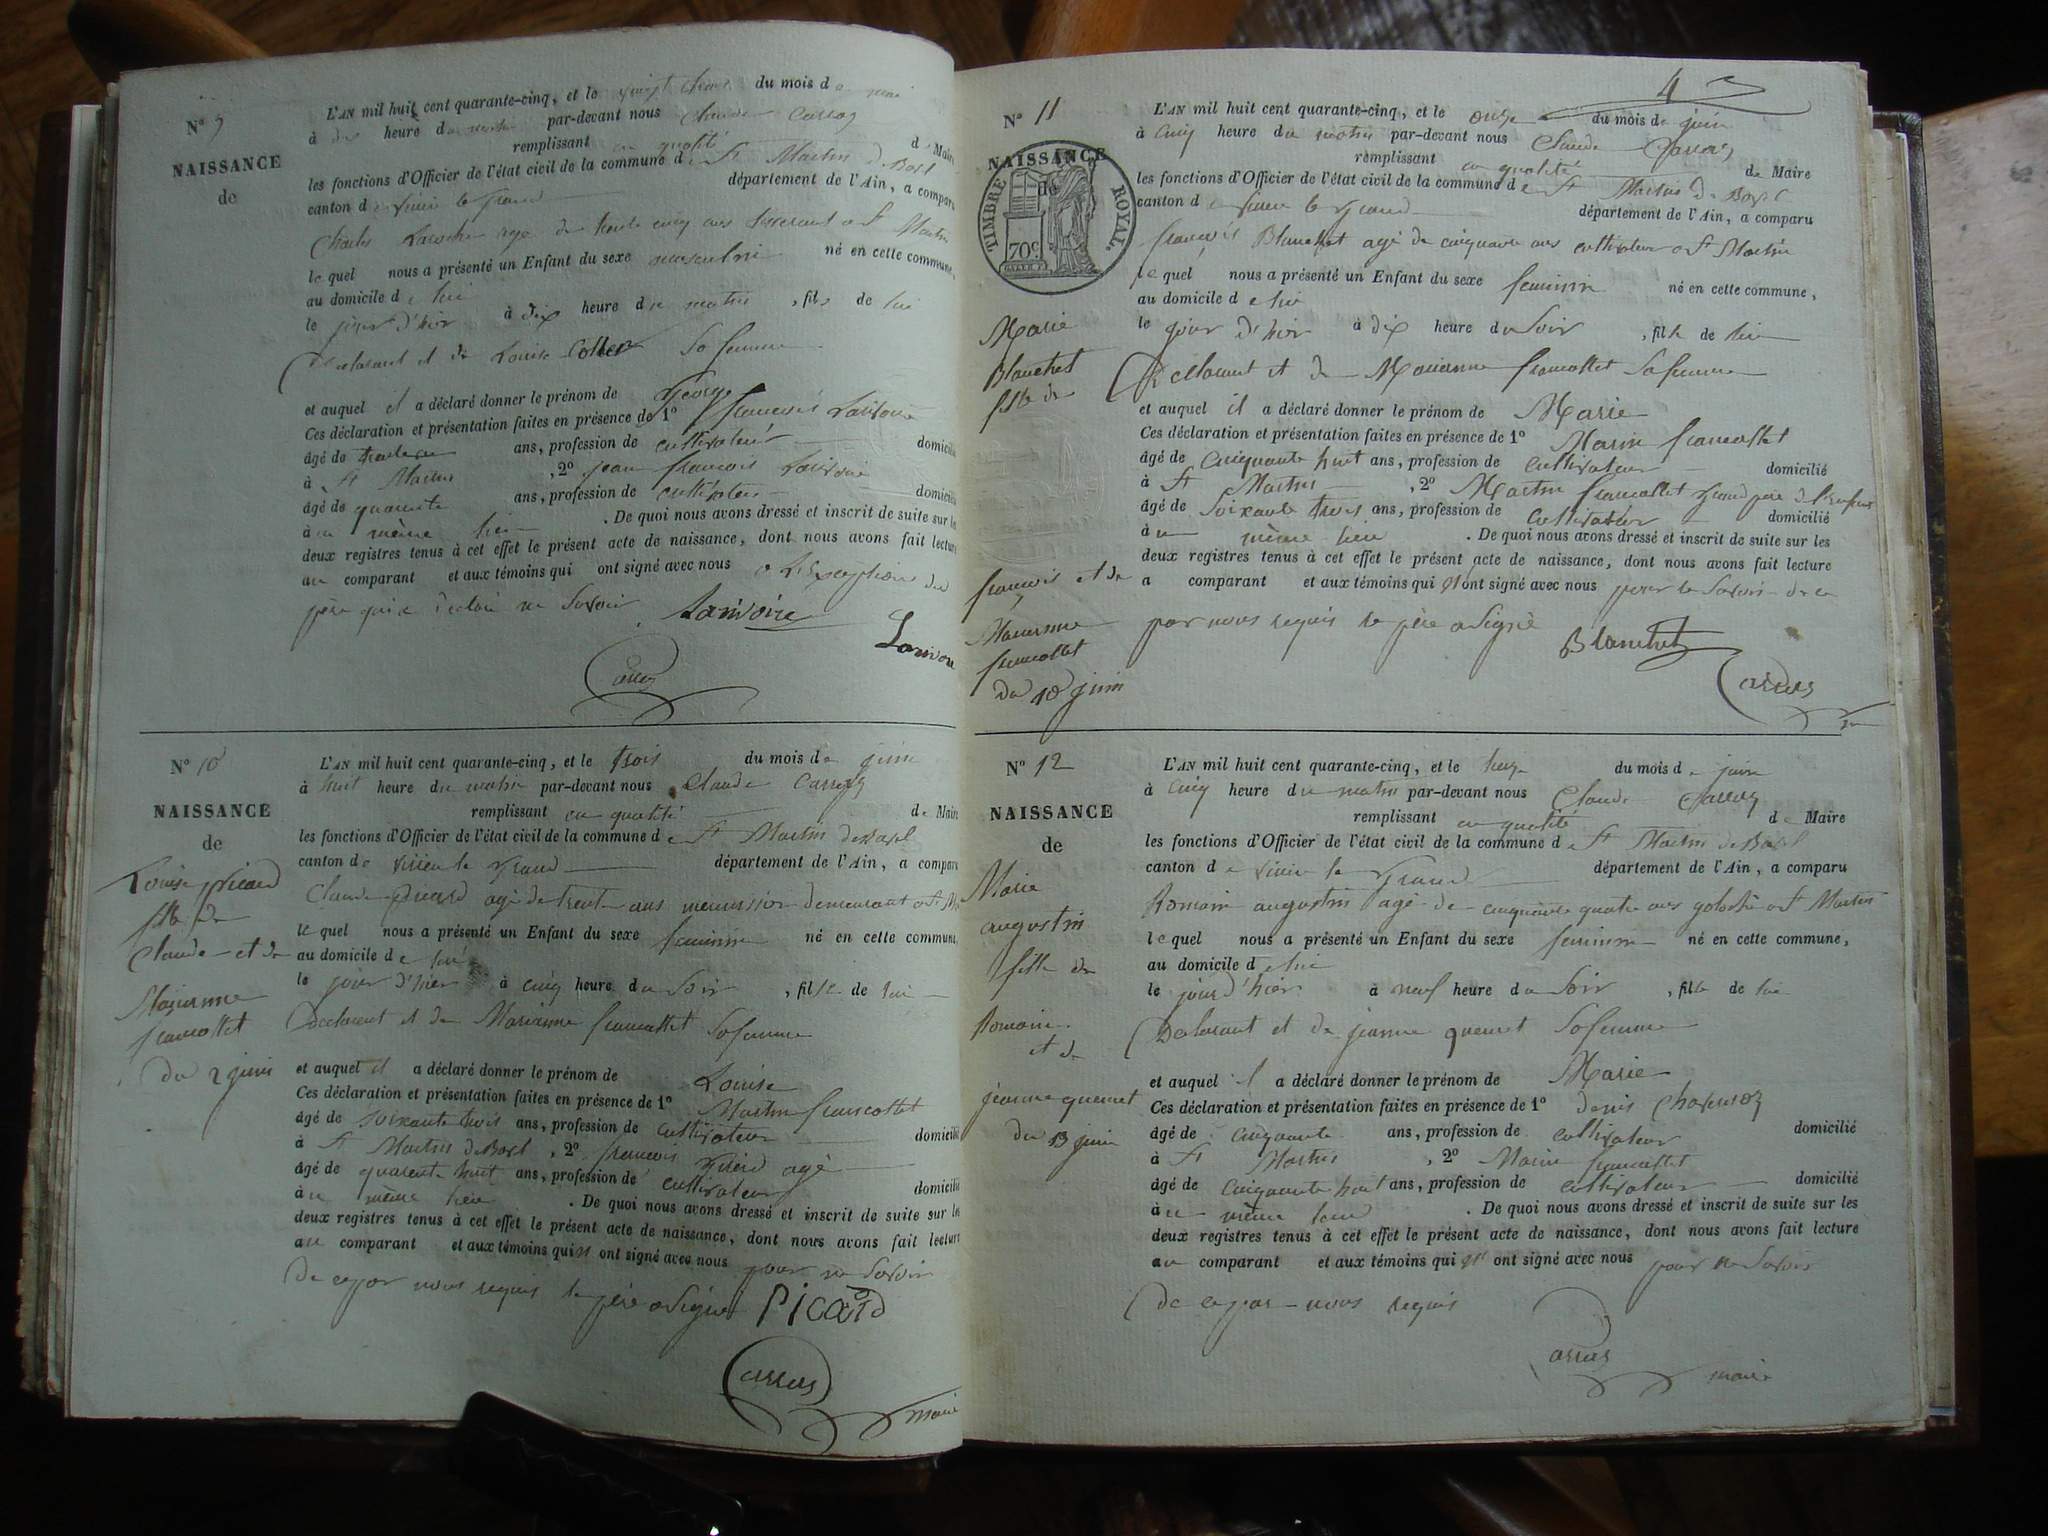 N° 9
NAISSANCE
de
L'AN mil huit cent quarante-cinq, et le vingt du mois de
à dix heure du matin par-devant nous Claude Carroz
remplissant en qualité de Maire
les fonctions d'Officier de l'état civil de la commune de St Martin de Bavel
canton de Virieu le Grand département de l'Ain, a comparu
Charles Laroche age de trente cinq ans a St Martin
le quel nous a présenté un Enfant du sexe masculin né en cette commune,
au domicile de lui
le jour d'hier à dix heure du matin, fils de lui
declarant et de Louise Collet sa femme
et auquel il a déclaré donner le prénom de George
Ces déclaration et présentation faites en présence de 1° françois Larivoire
âgé de ans, profession de cultivateur domicilié
à St Martin, 2° jean françois Larivoire
âgé de quarante ans, profession de cultivateur domicilié
à u même lieu. De quoi nous avons dressé et inscrit de suite sur les
deux registres tenus à cet effet le présent acte de naissance, dont nous avons fait lecture
au comparant et aux témoins qui ont signé avec nous a l'Exception du
père qui a declaré ne Savoir Larivoire
Carroz
N° 10
NAISSANCE
de
Louise picard
fille de
Claude et de
Marianne
francollet
du 2 juin
L'AN mil huit cent quarante-cinq, et le trois du mois de juin
à huit heure du matin par-devant nous Claude Carroz
remplissant en qualité de Maire
les fonctions d'Officier de l'état civil de la commune de St Martin de Bavel
canton de Virieu le Grand département de l'Ain, a comparu
Claude picard agé de trente ans menuisier demeurant a St M
le quel nous a présenté un Enfant du sexe feminin né en cette commune,
au domicile de lui
le jour d'hier à cinq heure du Soir, fille de lui
declarent et de Marianne francollet Sa femme
et auquel il a déclaré donner le prénom de Louise
Ces déclaration et présentation faites en présence de 1° Martin francollet
âgé de soixante trois ans, profession de cultivateur domicilié
à St Martin de Bavel, 2° francois agé
âgé de quarente huit ans, profession de cultivateur domicilié
à u même lieu. De quoi nous avons dressé et inscrit de suite sur les
deux registres tenus à cet effet le présent acte de naissance, dont nous avons fait lecture
au comparant et aux témoins qui n ont signé avec nous pour ne Savoir
de ce par nous requis le père a Signé Picard
Carroz maire
4
N° 11
NAISSANCE
de
TIMBRE ROYAL.
70c.
Marie
Blanchet
fille de
françois et de
Marianne
francollet
du 10 juin
L'AN mil huit cent quarante-cinq, et le onze du mois de juin
à cinq heure du matin par-devant nous Claude Carroz
remplissant en qualité de Maire
les fonctions d'Officier de l'état civil de la commune de St Martin de Bavel
canton de Virieu le Grand département de l'Ain, a comparu
françois Blanchet agé de cinquante ans cultivateur a St Martin
le quel nous a présenté un Enfant du sexe feminin né en cette commune,
au domicile de lui
le jour d'hier à dix heure du Soir, fille de lui
declarant et de Marianne francollet Sa femme
et auquel il a déclaré donner le prénom de Marie
Ces déclaration et présentation faites en présence de 1° Marin francollet
âgé de cinquante huit ans, profession de cultivateur domicilié
à St Martin, 2° Martin francollet grand père de l'enfant
âgé de Soixante trois ans, profession de cultivateur domicilié
à u même lieu. De quoi nous avons dressé et inscrit de suite sur les
deux registres tenus à cet effet le présent acte de naissance, dont nous avons fait lecture
a comparant et aux témoins qui n ont signé avec nous pour ne Savoir de ce
par nous requis le père a Signé
Blanchet
Carroz
N° 12
NAISSANCE
de
Marie
augustin
fille de
Romain
et de
jeanne quemet
du 13 juin
L'AN mil huit cent quarante-cinq, et le du mois de juin
à cinq heure du matin par-devant nous Claude Carroz
remplissant en qualité de Maire
les fonctions d'Officier de l'état civil de la commune de St Martin de Bavel
canton de Virieu le Grand département de l'Ain, a comparu
Romain augustin agé de cinquante quatre ans a St Martin
le quel nous a présenté un Enfant du sexe feminin né en cette commune,
au domicile de lui
le jour d'hier à neuf heure du Soir, fille de lui
Declarant et de jeanne quemet Sa femme
et auquel il a déclaré donner le prénom de Marie
Ces déclaration et présentation faites en présence de 1° denis
âgé de cinquante ans, profession de cultivateur domicilié
à St Martin, 2° Marin francollet
âgé de cinquante huit ans, profession de cultivateur domicilié
à u même lieu. De quoi nous avons dressé et inscrit de suite sur les
deux registres tenus à cet effet le présent acte de naissance, dont nous avons fait lecture
au comparant et aux témoins qui n ont signé avec nous pour ne Savoir
de ce par nous requis
Carroz maire